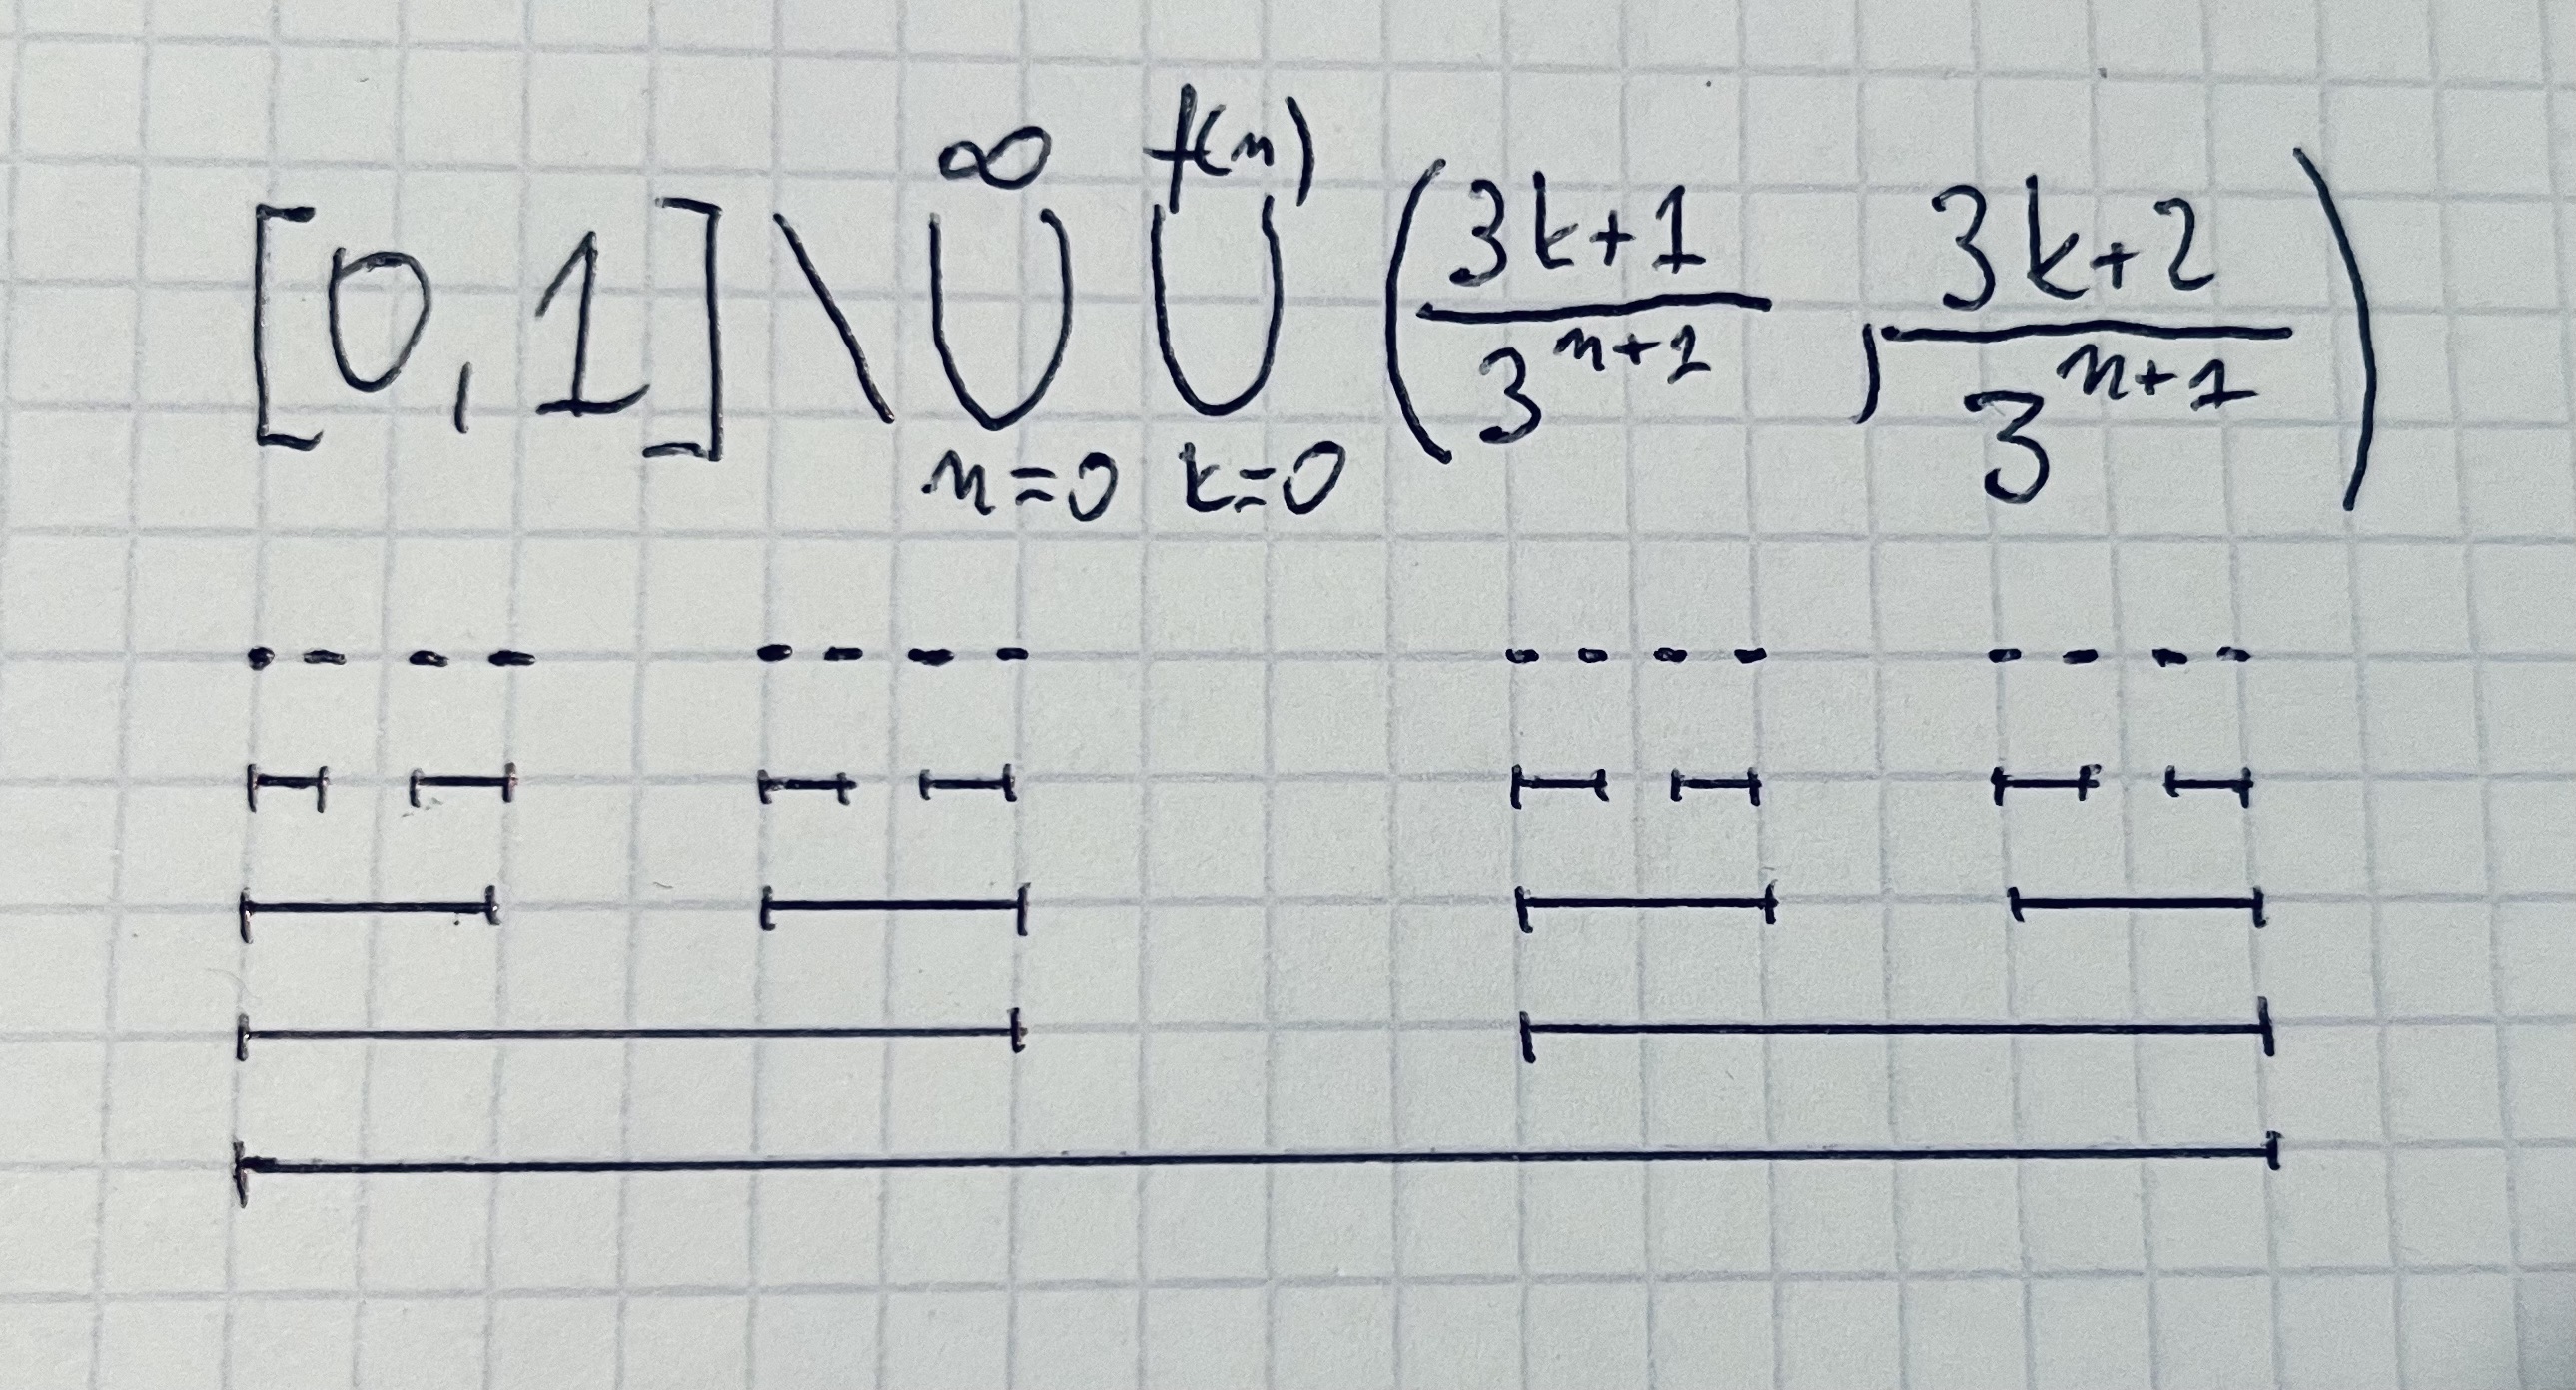 [0,1] \ ∞⋃n=0 f(n)⋃k=0 ( (3k+1)/3^(n+1) , (3k+2)/3^(n+1) )